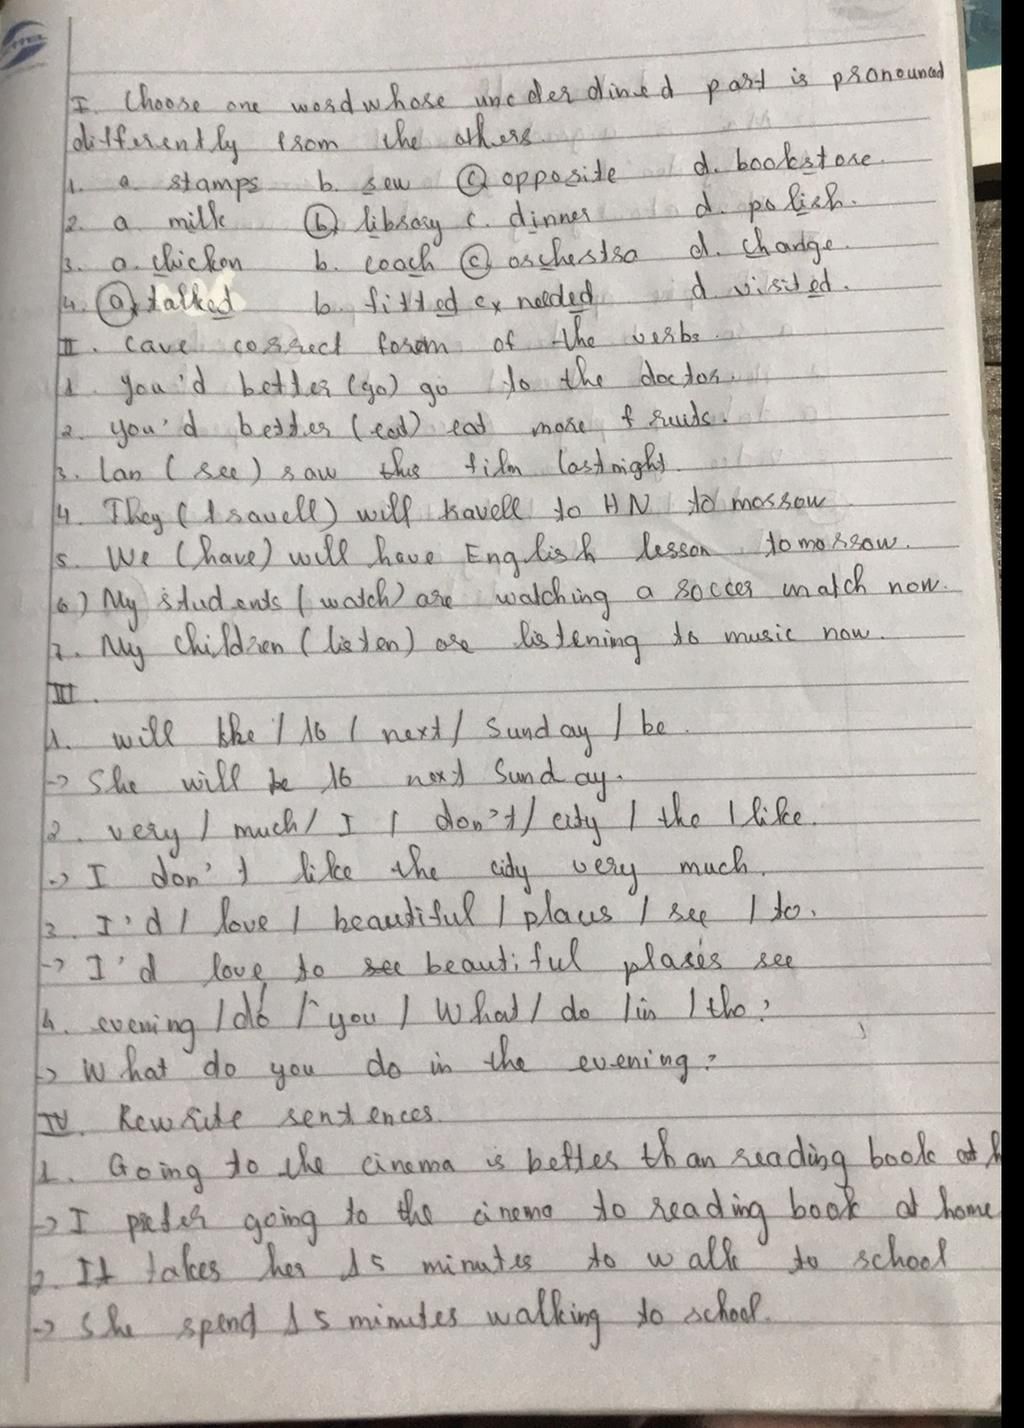 I. Choose one word whose uncderdined part is pronounced
differently from the others.
1. a stamps b. sew c opposite d. bookstore.
2. a milk b library c. dinner d. polish.
3. a. chicken b. coach c orchestra d. change.
4. a talked b. fitted c needed d visited.
II. Cave correct form of the verbs
1. You'd better (go) go to the doctor.
2. You'd better (eat) eat more fruits.
3. Lan (see) saw this film last night.
4. They (travell) will travell to HN tomorrow
5. We (have) will have English lesson tomorrow.
6) My students (watch) are watching a soccer match now.
7. My children (listen) are listening to music now.
III.
1. will she / 16 / next / Sunday / be.
-> She will be 16 next Sunday.
2. very / much / I / don't / city / the / like.
-> I don't like the city very much.
3. I'd / love / beautiful / places / see / to.
-> I'd love to see beautiful places see
4. evening / do / you / What / do / in / the?
-> What do you do in the evening?
IV. Rewrite sentences.
1. Going to the cinema is better than reading book at h
-> I prefer going to the cinema to reading book at home
2. It takes her 15 minutes to walk to school
-> She spend 15 minutes walking to school.